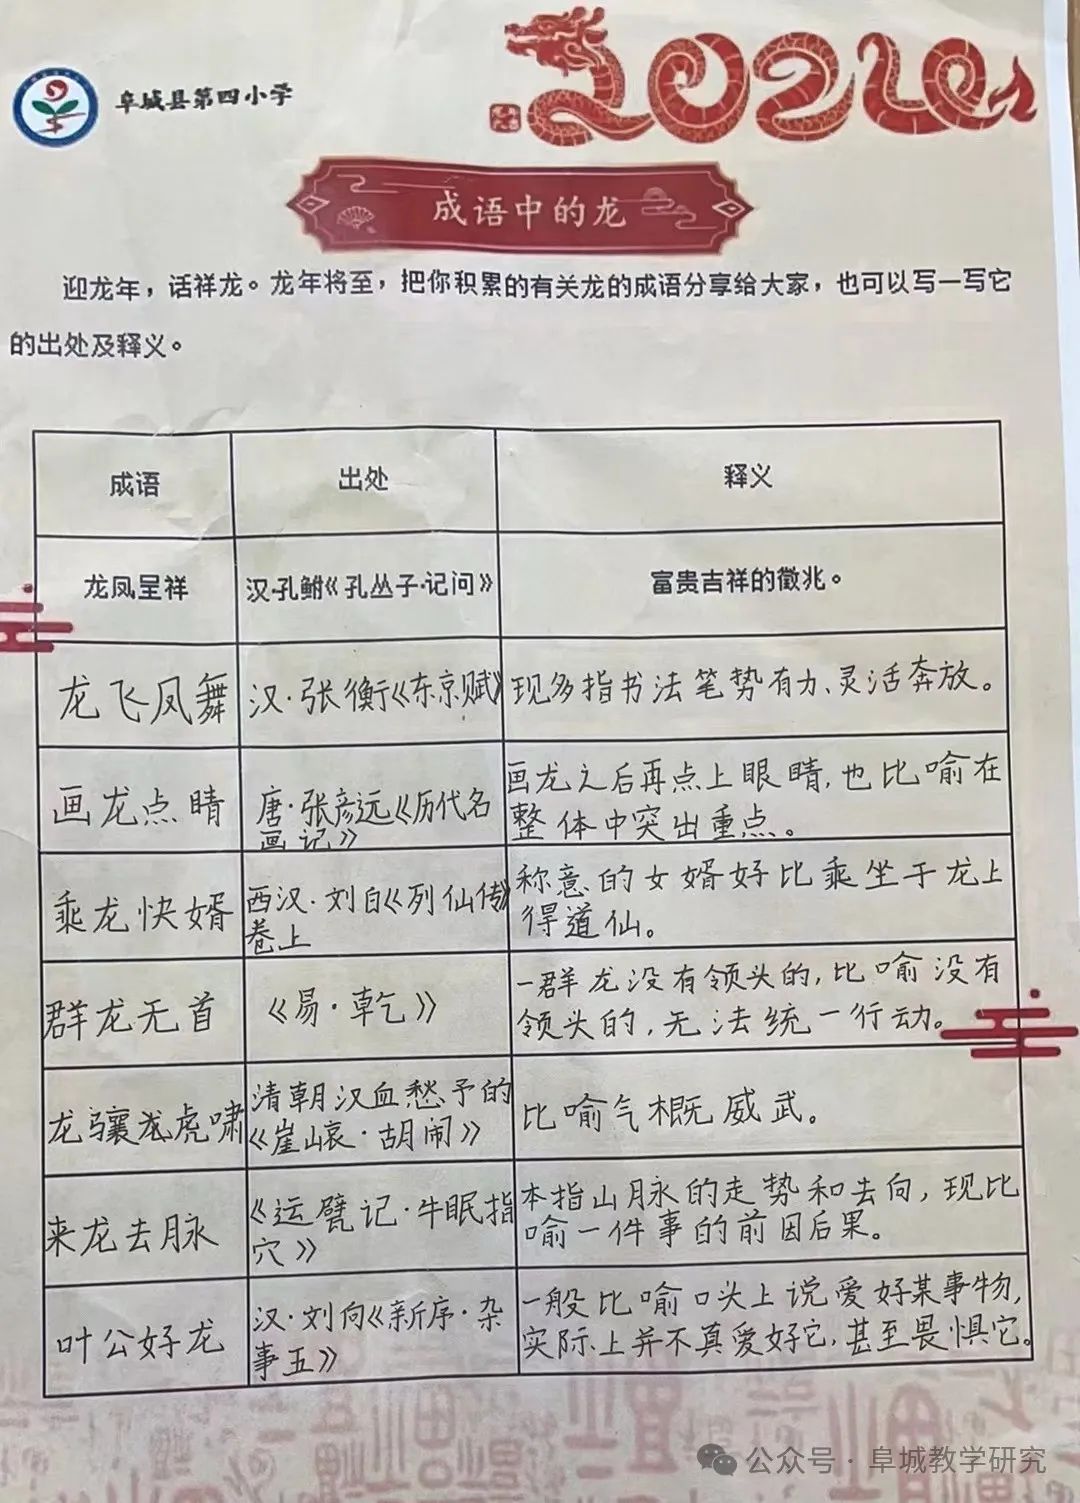 阜城县第四小学
2024
成语中的龙
迎龙年，话祥龙。龙年将至，把你积累的有关龙的成语分享给大家，也可以写一写它
的出处及释义。
成语 出处 释义
龙凤呈祥 汉·孔鲋《孔丛子·记问》 富贵吉祥的徵兆。
龙飞凤舞 汉·张衡《东京赋》 现多指书法笔势有力、灵活奔放。
画龙点睛 唐·张彦远《历代名
画记》
画龙之后再点上眼睛，也比喻在
整体中突出重点。
乘龙快婿 西汉·刘白《列仙传》
卷上
称意的女婿好比乘坐于龙上
得道仙。
群龙无首 《易·乾》
一群龙没有领头的，比喻没有
领头的，无法统一行动。
龙骧虎啸
清朝汉血愁予的
《崖山哀·胡闹》
比喻气概威武。
来龙去脉
《运甓记·牛眠指
穴》
本指山脉的走势和去向，现比
喻一件事的前因后果。
叶公好龙
汉·刘向《新序·杂
事五》
一般比喻口头上说爱好某事物，
实际上并不真爱好它，甚至畏惧它。
公众号·阜城教学研究